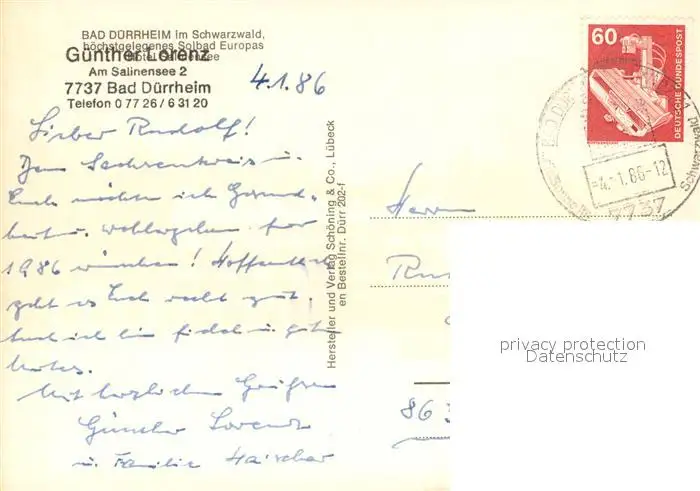 BAD DÜRRHEIM im Schwarzwald,
höchstgelegenes Solbad Europas
Hotel Salinensee
Günther Lorenz
Am Salinensee 2
7737 Bad Dürrheim
Telefon 0 77 26 / 6 31 20
4.1.86
Lieber Rudolf!
Dem Sachsenkreis u.
Euch möchte ich Gesund-
heit u. Wohlergehen für
1986 wünschen! Hoffentlich
geht es Euch recht gut.
Auch ich bin fidel u. guten
Mutes.
Mit herzlichen Grüßen
Günther Lorenz
u. Familie
Hersteller und Verlag Schöning & Co., Lübeck
en Bestellnr. Dürr 202-f
60
DEUTSCHE BUNDESPOST
-4.-1.86-12
7737
Schwarzwald
Herrn
86
privacy protection
Datenschutz